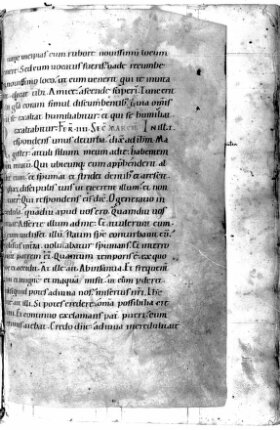 cum rubore nouissimũ locum
nere. Sed cum uocatus fueris uade recumbe
nouissimo loco. ut cum uenerit qui te inuita
tibi. Amice ascende superi. Tunc erit
gl̃a coram simul discumbentib; Quia om̃s
se exaltat humiliabitur et qui se humiliat
exaltabitur. FER IIII. SEC MARCV̄ IN ILL T.
respondens unus de turba. dix̃ ad ihm̃. Ma
gister. attuli filium meum ad te habentem
mutũ. Qui ubicumq; eum apphenderit al
eum. et spumat et stridet dentib; et arescit.
dixi discipulis tuis ut eicerent illum. et non
uerũ. Qui respondens eis dix̃. O generatio in
credula. quãdiu apud uos ero. Quamdiu uos
Afferte illum ad me. Et attulerunt eum.
cum uidisset illũ. statim sp̃c conturbauit eũ.
uolutabatur spumans. Et interro
patrem ei. Quantum temporis ẽ. ex quo
accidit. At ille ait. Ab infantia. Et frequent
in ignẽ et in aquas misit. ut eum pderet.
si quid potes adiuua nos. misertus nr̃i. Ihc̃
ait illi. Si potes credere. om̃ia possibilia
Et continuo exclamans pat pueri. cum
aiebat. Credo dñe. adiuua incredulitatẽ